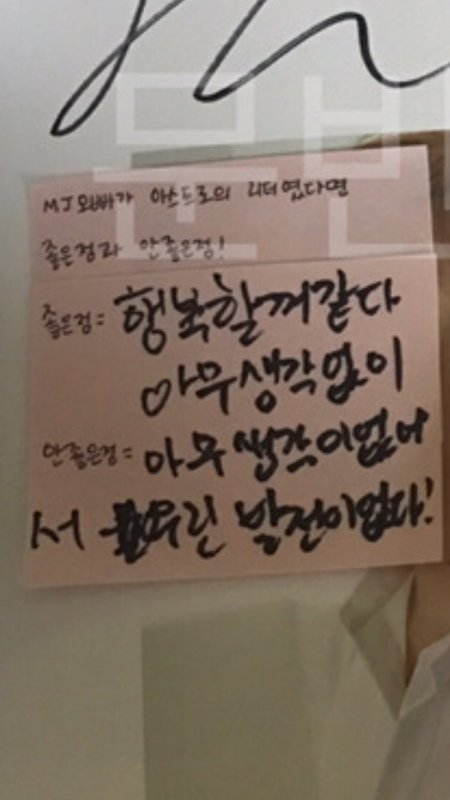 문빈
MJ오빠가 아스트로의 리더 였다면
좋은점과 안좋은점!
좋은점= 행복할꺼같다
아무생각없이
안좋은점= 아무 생각이없어
서 우린 발전이없다!